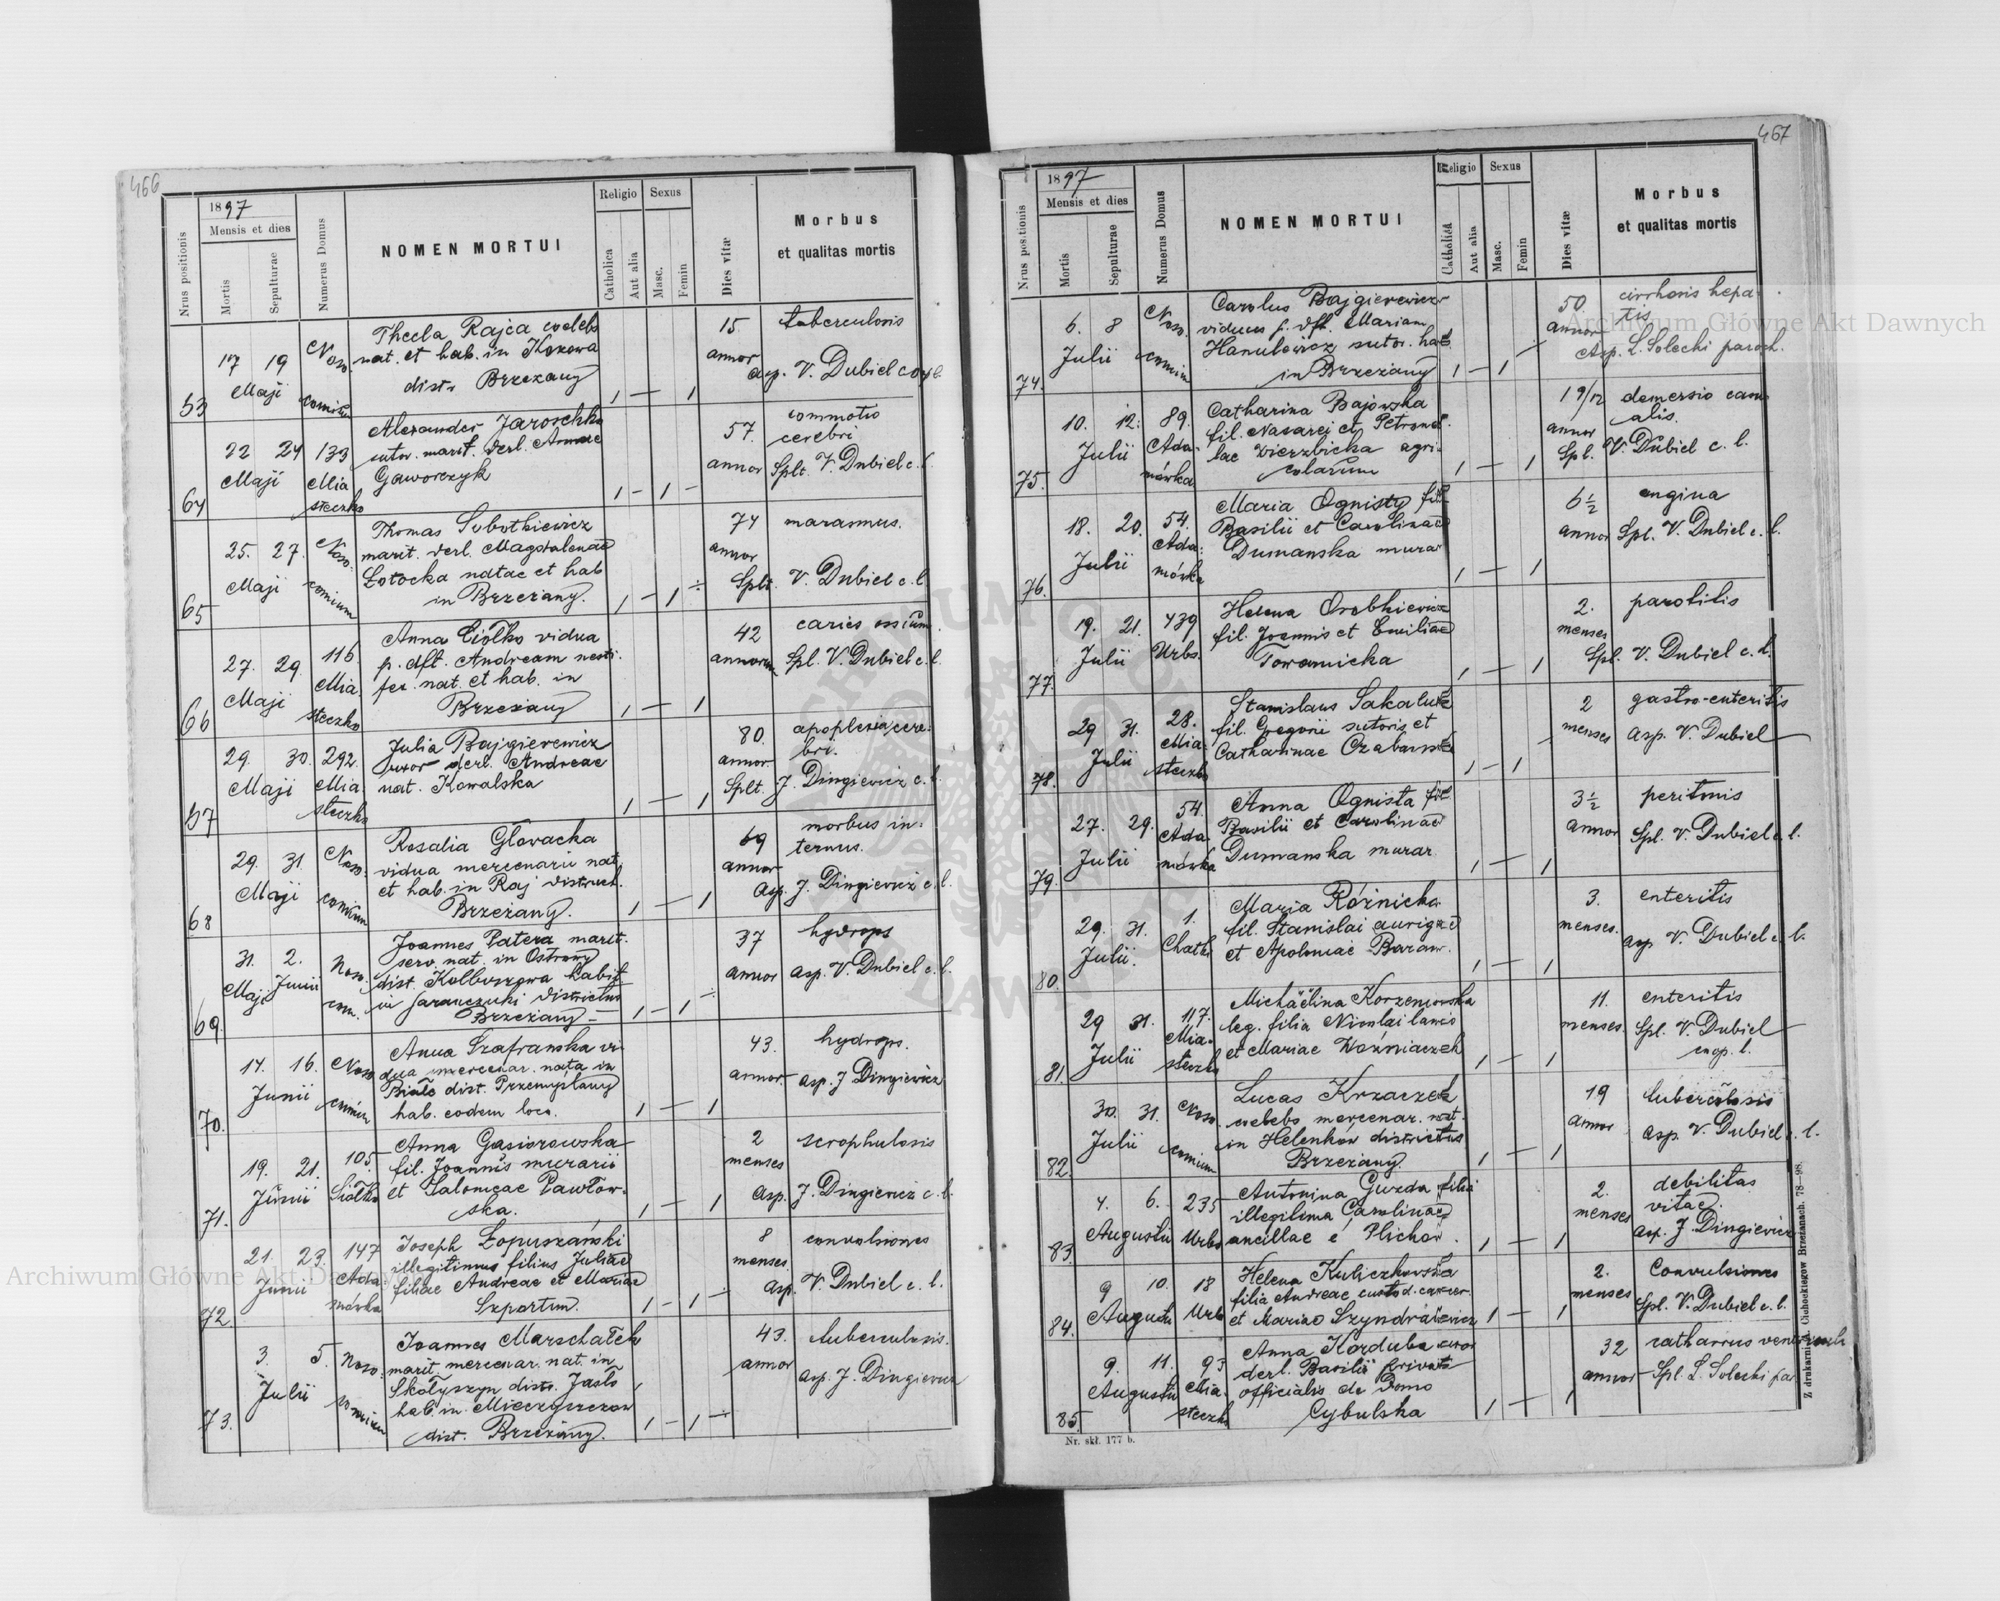 466
1897
Mensis et dies
Nrus positionis
Mortis
Sepulturae
Numerus Domus
NOMEN MORTUI
Religio
Catholica
Aut alia
Sexus
Masc.
Femin
Dies vitæ
Morbus
et qualitas mortis
63
17 19
Maji
Noso
comium
Thecla Rajca coelebs
nat. et hab. in Kozowa
distr. Brzezany
1 — 1
15
annor
tuberculosis
asp. V. Dubiel coop.
64
22 24
Maji
133
Mia
steczko
Alexander Jaroschko
sutor. marit. derl. Annae
Gaworczyk
1 - 1 -
57.
annor
commotio
cerebri
Splt. V. Dubiel c. l.
65
25. 27.
Maji
Noso
comium
Thomas Sobotkiewicz
marit. derl. Magdalenae
Łotocka natae et hab
in Brzezany.
1 - 1 ÷
74
annor
marasmus.
Splt. V. Dubiel c. l.
66
27. 29.
Maji
116.
Mia.
steczko
Anna Ciołko vidua
p. dft. Andream
nat. et hab. in
Brzezany
1 — 1
42
annorum
caries ossium.
Spl. V. Dubiel c. l.
67
29. 30.
Maji
292.
Mia.
steczko
Julia Bajgierewicz
uxor derl. Andreae
nat. Kowalska
1 — 1
80.
annor
apoplexia cere-
bri.
Splt. J. Dingiewicz c. l.
68
29. 31.
Maji
Noso
comium
Rosalia Głovacka
vidua mercenarii nat.
et hab. in Raj district.
Brzeżany.
1 — 1
69
annor
morbus in-
ternus.
asp. J. Dingiewicz c. l.
69.
31. 2.
Maji Junii
Noso.
com.
Joannes Patera marit.
serv. nat. in Ostrowy
dist. Kolbuszowa habit
in Saranczuki districtus
Brzeżany —
1 — 1 ÷
37
annor
hydrops
asp. V. Dubiel c. l.
70.
14. 16.
Junii
Noso
comium
Anna Szafranska vi-
dua mercenar. nata in
Białe dist. Przemyślany
hab. eodem loco.
1 — 1
43.
annor.
hydrops.
asp. J Dingiewicz
71.
19. 21.
Junii
105.
Siółko
Anna Gąsiorowska
fil. Joannis murarii
et Salomeae Pawłow-
ska.
1 — 1
2
menses
scrophulosis
asp. J. Dingiewicz c. l.
72
21. 23.
Junii
147
Ada
mówka
Joseph Łopuszański
illegitimus filius Juliae
filiae Andreae et Mariae
Szportun.
1 — 1 ÷
8
menses.
convulsiones
asp. V. Dubiel c. l.
73.
3. 5.
Julii
Noso.
comium
Joannes Marschałek
marit. mercenar. nat. in
Skołyszyn distr. Jasło
hab. in Mieczyszczow
dist. Brzeżany.
1 — 1 ÷
43.
annor
tuberculosis.
asp. J. Dingiewicz
467
1897
Mensis et dies
Nrus positionis
Mortis
Sepulturae
Numerus Domus
NOMEN MORTUI
Religio
Catholica
Aut alia
Sexus
Masc.
Femin
Dies vitæ
Morbus
et qualitas mortis
74.
6. 8
Julii
Noso.
comium
Carolus Bajgierewicz
viduus p. dft. Mariam
Hanulewicz sutor. hab.
in Brzezany
1 — 1 ÷
50.
annor
cirrhosis hepa-
tis
Asp. L. Solecki paroch.
75.
10. 12.
Julii
89.
Ada-
mówka
Catharina Bajowska
fil. Nasarei et Petronel
lae Wierzbicka agri-
colarum
1 — 1
1 9/12
annor
demersio casu
alis.
Spl. V. Dubiel c. l.
76.
18. 20.
Julii
54.
Ada.
mówka
Maria Ognisty fil
Basilii et Carolinae
Dumanska murar
1 — 1
6 1/2
annor
angina
Spl. V. Dubiel c. l.
77.
19. 21.
Julii
439
Urbs.
Helena Orobkiewicz
fil. Joannis et Emiliae
Towarnicka
1 — 1
2.
menses
parotitis
Spl. V. Dubiel c. l.
78.
29 31.
Julii
28.
Mia
steczko
Stanislaus Sakaluk
fil. Gregorii sutoris et
Catharinae Czabanska
1 — 1
2
menses
gastro-enteritis
asp. V. Dubiel
79.
27. 29.
Julii
54.
Ada.
mówka
Anna Ognista fil
Basilii et Carolinae
Dumanska murar.
1 — 1
3 1/2
annor
peritonis
Spl. V. Dubiel c. l.
80.
29. 31.
Julii.
1.
Chatki
Maria Różnicka
fil. Stanislai aurigae
et Apoloniae Baran.
1 — 1
3.
menses.
enteritis
asp V. Dubiel c. l.
81.
29 31.
Julii
117.
Mia-
steczko
Michäelina Korzeniowska
leg. filia Nicolai lanio
et Mariae Woźniaczek
1 — 1
11.
menses.
enteritis
Spl. V. Dubiel
coop. l.
82.
30. 31.
Julii
Noso
comium
Lucas Krzaczek
coelebs mercenar. nat.
in Helenków districtus
Brzeżany.
1 — 1
19
annor
tuberculosis
asp. V. Dubiel c. l.
83.
4. 6.
Augusti
235
Urbs
Antonina Guzda filia
illegitima Carolinae
ancillae é Plichow.
1 — 1
2.
menses
debilitas
vitae.
asp. J Dingiewicz
84.
9 10.
Augusti
18
Urbs
Helena Kuliczkowska
filia Andreae custod. carcer.
et Mariae Szyndralewicz
1 — 1
2.
menses
Convulsiones
Spl. V. Dubiel c. l.
85.
9. 11.
Augusti
93
Mia-
steczko
Anna Korduba uxor
derl. Basilii privati
officialis de domo
Cybulska
1 — 1
32
annor
catharrus ventriculi
Spl. L. Solecki par
Nr. skł. 177 b.
Z drukarni L. Cichockiegow Brzeżanach. 78—98.
Archiwum Główne Akt Dawnych
Archiwum Główne Akt Dawnych